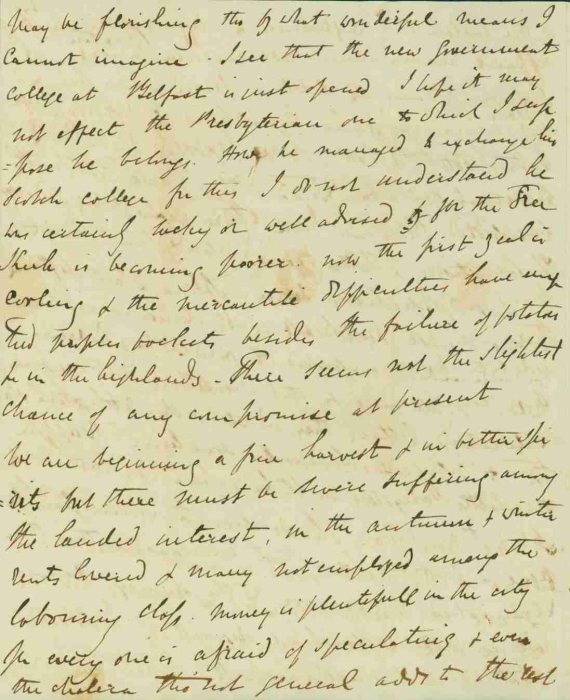 may be florishing tho by what wonderful means I
cannot imagine. I see that the new government
college at Belfast is just opened I hope it may
not effect the Presbyterian one to which I sup
=pose he belongs. How he managed to exchange his
Scotch college for this I do not understand he
was certainly lucky or well advised for the Free
Kirk is becoming poorer. now the first zeal is
cooling & the mercantile difficulties have emp
tied peoples pockets besides the failure of potatoes
&c in the highlands. There seems not the slightest
chance of any compromise at present
We are beginning a fine harvest & in better spi
=rits but there must be severe suffering among
the landed interest, in the autumn & winter
rents lowered & many not employed among the
labouring class. money is plentifull in the city
for every one is afraid of speculating & even
the cholera tho not general adds to the rest